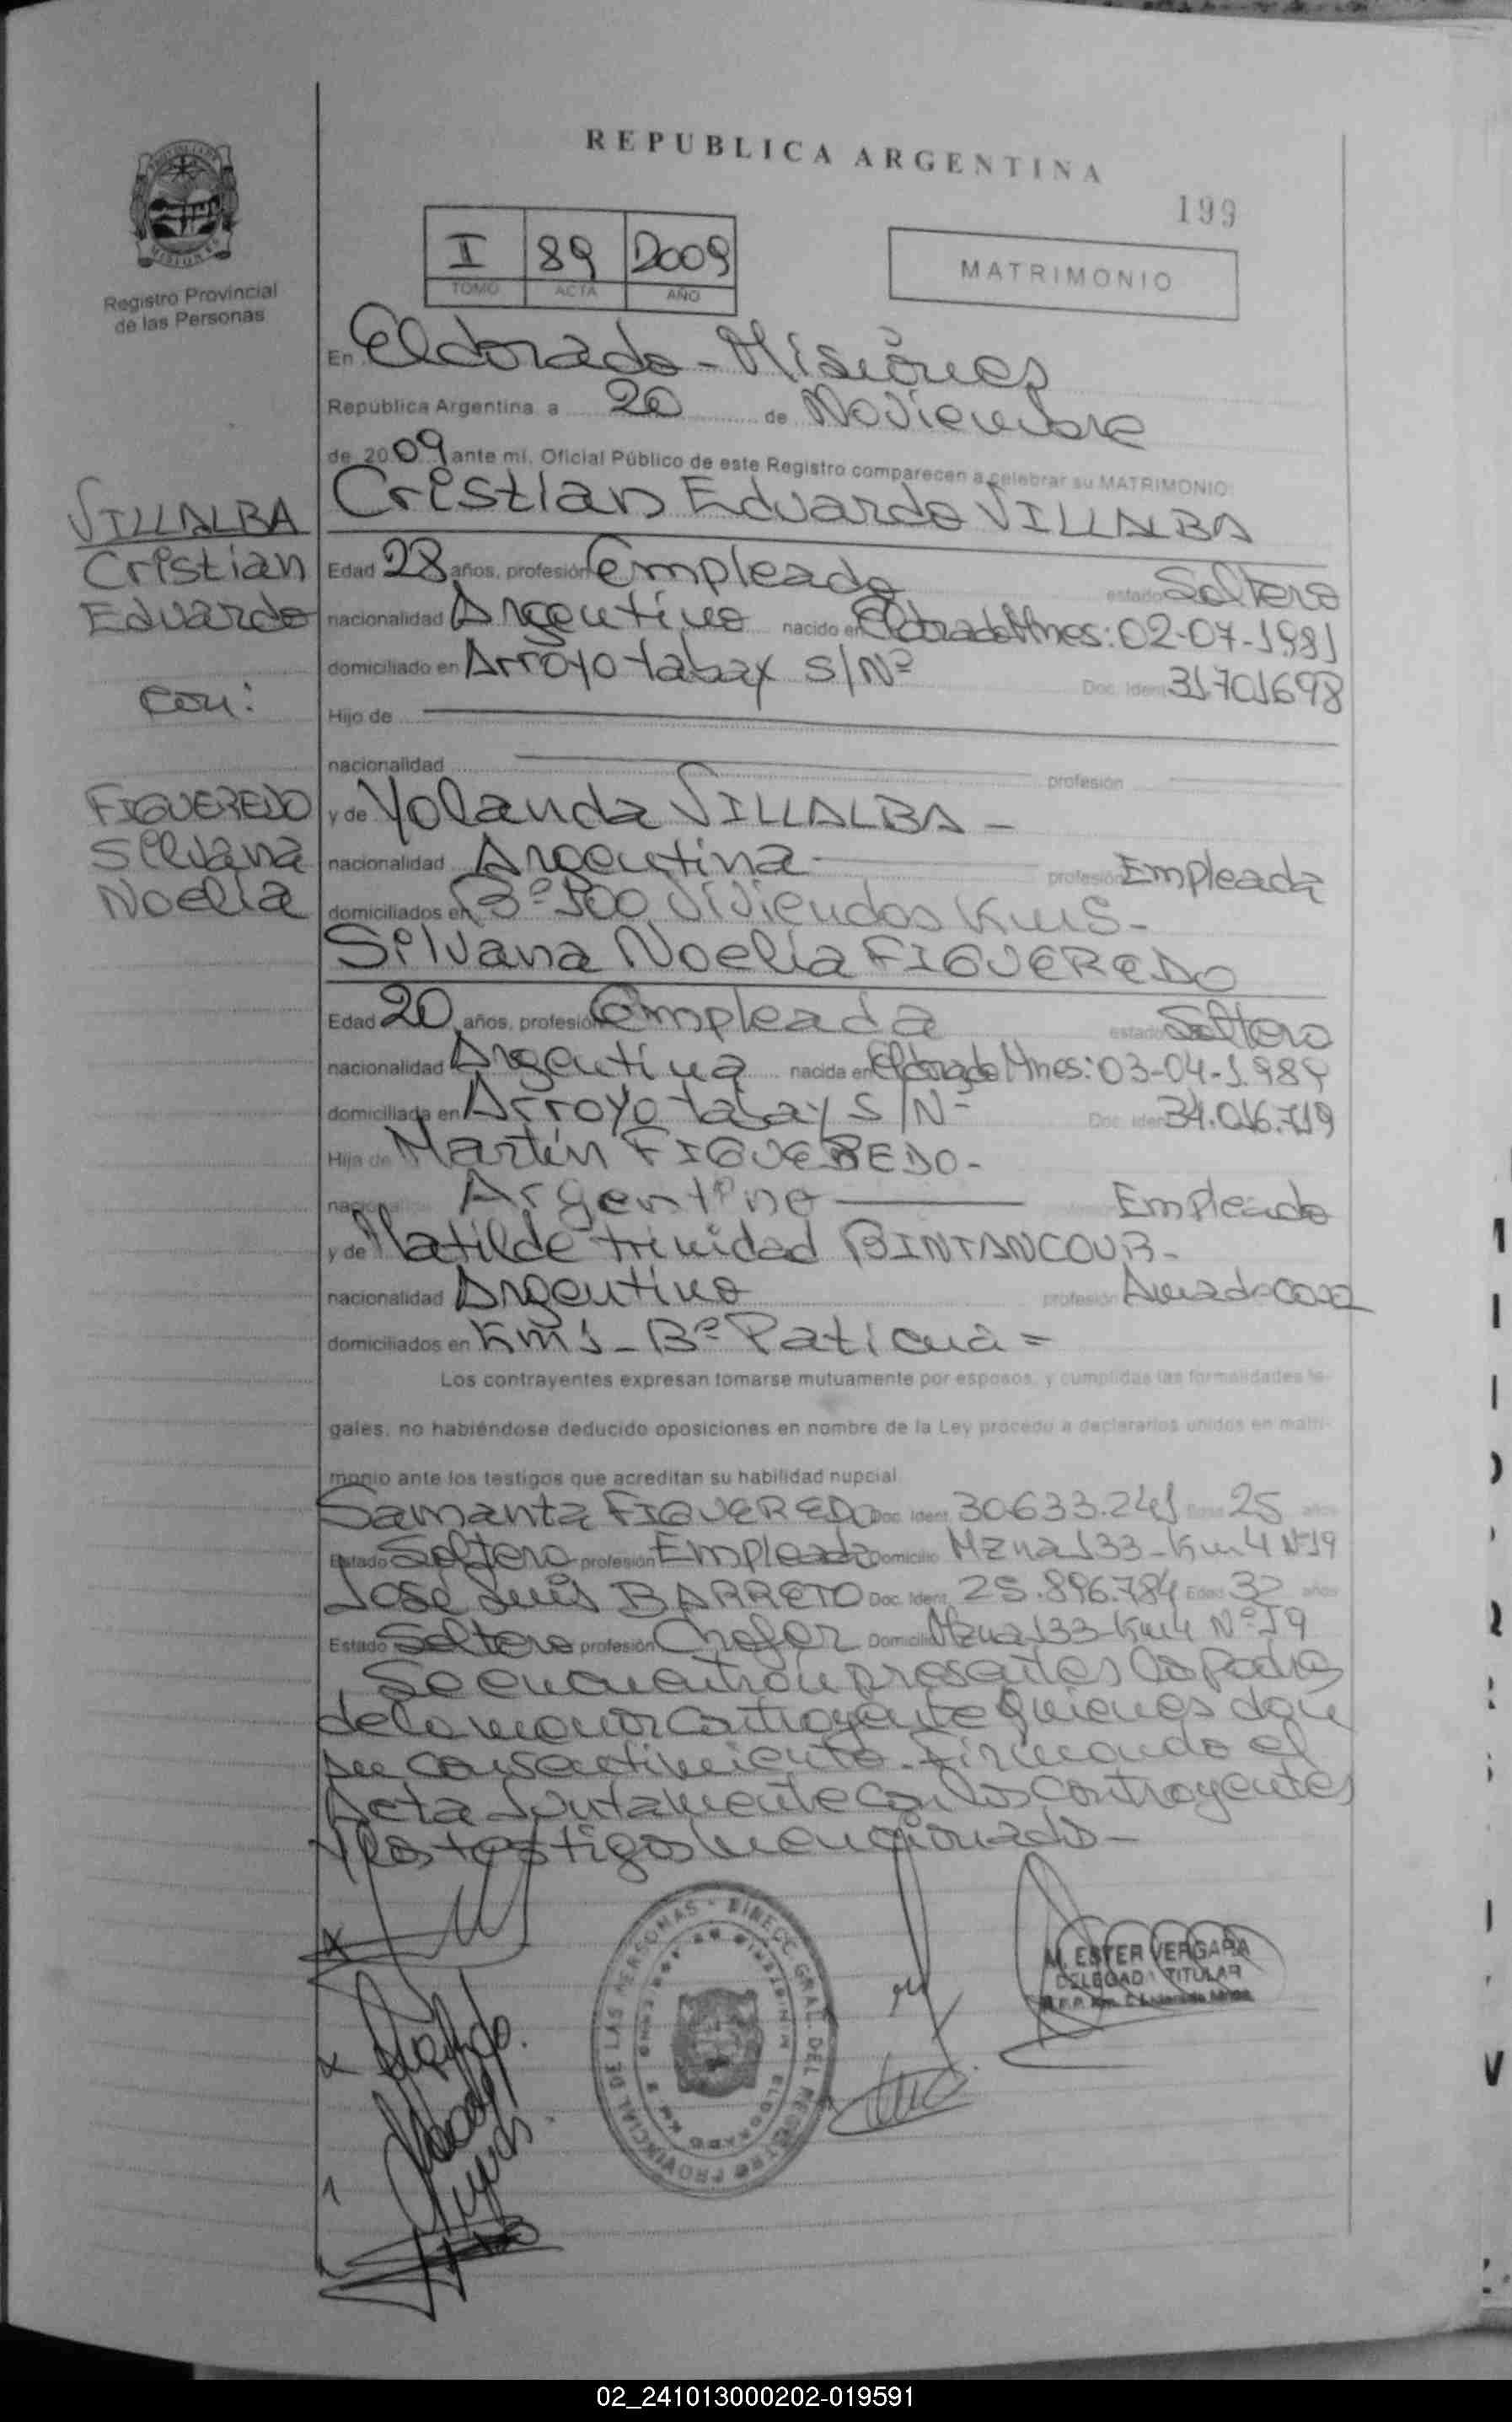 REPUBLICA ARGENTINA
199
I 89 2009
TOMO ACTA AÑO
MATRIMONIO
MISIONES
Registro Provincial
de las Personas
En Eldorado - Misiones
República Argentina a 20 de Noviembre
de 2009 ante mi, Oficial Público de este Registro comparecen a celebrar su MATRIMONIO:
VILLALBA
Cristian
Eduardo
con:
FIGUEREDO
Silvana
Noelia
Cristian Eduardo VILLALBA
Edad 28 años, profesión Empleado estado Soltero
nacionalidad Argentino nacido en Eldorado Mnes: 02-07-1981
domiciliado en Arroyo tabay S/Nº Doc. Ident. 31701698
Hijo de
nacionalidad profesión
y de Yolanda VILLALBA -
nacionalidad Argentina profesión Empleada
domiciliados en Bº 500 Viviendas Km 5-
Silvana Noelia FIGUEREDO
Edad 20 años, profesión Empleada estado Soltera
nacionalidad Argentina nacida en Eldorado Mnes: 03-04-1989
domiciliada en Arroyo tabay S/Nº Doc. Ident. 34.016.719
Hija de Martin FIGUEREDO-
nacionalidad Argentino Empleado
y de Matilde trinidad BINTANCOUR-
nacionalidad Argentina profesión Ama de casa
domiciliados en Km 1 - Bº Paticuá =
Los contrayentes expresan tomarse mutuamente por esposos, y cumplidas las formalidades le-
gales, no habiéndose deducido oposiciones en nombre de la Ley procedo a declararlos unidos en matri-
monio ante los testigos que acreditan su habilidad nupcial
Samanta FIGUEREDO Doc. Ident. 30633.241 Edad 25 años
Estado Soltera profesión Empleada Domicilio Mzna 133-Km 4 Nº19
José Luis BARRETO Doc. Ident. 25.896.784 Edad 32 años
Estado Soltero profesión Chofer Domicilio Mzna 133-Km 4 Nº 19
Se encuentran presentes los padres
de la menor contrayente quienes dan
su consentimiento. firmando el
Acta Juntamente con los contrayentes
y los testigos mencionado-
DIRECC. GRAL. DEL REGISTRO PROVINCIAL DE LAS PERSONAS
ELDORADO
M. ESTER VERGARA
DELEGADA TITULAR
02_241013000202-019591